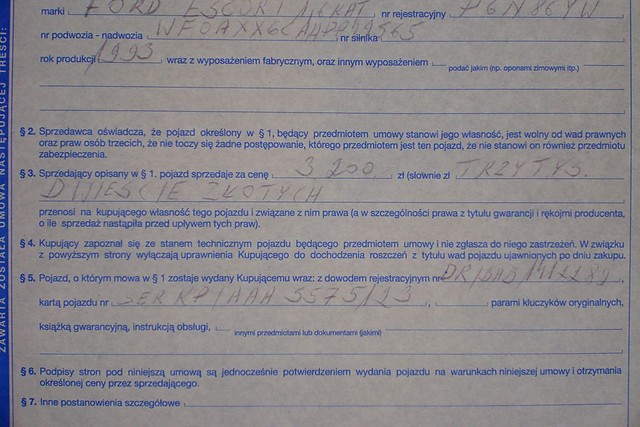 marki FORD ESCORT nr rejestracyjny PGN 86YW
nr podwozia - nadwozia nr silnika
rok produkcji 1993 wraz z wyposażeniem fabrycznym, oraz innym wyposażeniem
podać jakim (np. oponami zimowymi itp.)
§ 2. Sprzedawca oświadcza, że pojazd określony w § 1, będący przedmiotem umowy stanowi jego własność, jest wolny od wad prawnych
oraz praw osób trzecich, że nie toczy się żadne postępowanie, którego przedmiotem jest ten pojazd, że nie stanowi on również przedmiotu
zabezpieczenia.
§ 3. Sprzedający opisany w § 1. pojazd sprzedaje za cenę 3 200 zł (słownie zł TRZY TYS.
DWIEŚCIE ZŁOTYCH
przenosi na kupującego własność tego pojazdu i związane z nim prawa (a w szczególności prawa z tytułu gwarancji i rękojmi producenta,
o ile sprzedaż nastąpiła przed upływem tych praw).
§ 4. Kupujący zapoznał się ze stanem technicznym pojazdu będącego przedmiotem umowy i nie zgłasza do niego zastrzeżeń. W związku
z powyższym strony wyłączają uprawnienia Kupującego do dochodzenia roszczeń z tytułu wad pojazdu ujawnionych po dniu zakupu.
§ 5. Pojazd, o którym mowa w § 1 zostaje wydany Kupującemu wraz: z dowodem rejestracyjnym nr
kartą pojazdu nr SERKP/AAA 5575123, parami kluczyków oryginalnych,
książką gwarancyjną, instrukcją obsługi,
innymi przedmiotami lub dokumentami (jakimi)
§ 6. Podpisy stron pod niniejszą umową są jednocześnie potwierdzeniem wydania pojazdu na warunkach niniejszej umowy i otrzymania
określonej ceny przez sprzedającego.
§ 7. Inne postanowienia szczegółowe
ZAWARTA ZOSTAŁA UMOWA NASTĘPUJĄCEJ TREŚCI: